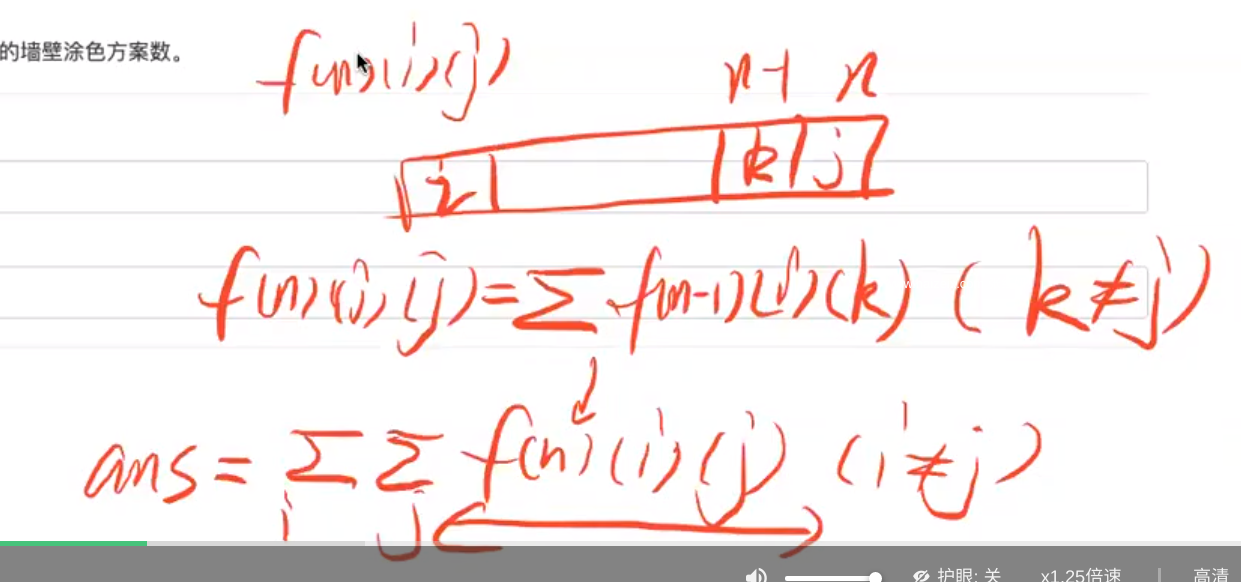 的墙壁涂色方案数。
f(n)(i)(j)
n-1 n
i k j
f(n)(i)(j)=∑f(n-1)(i)(k) (k≠j)
ans=∑∑f(n)(i)(j) (i≠j)
i j
护眼: 关 x1.25倍速 高清